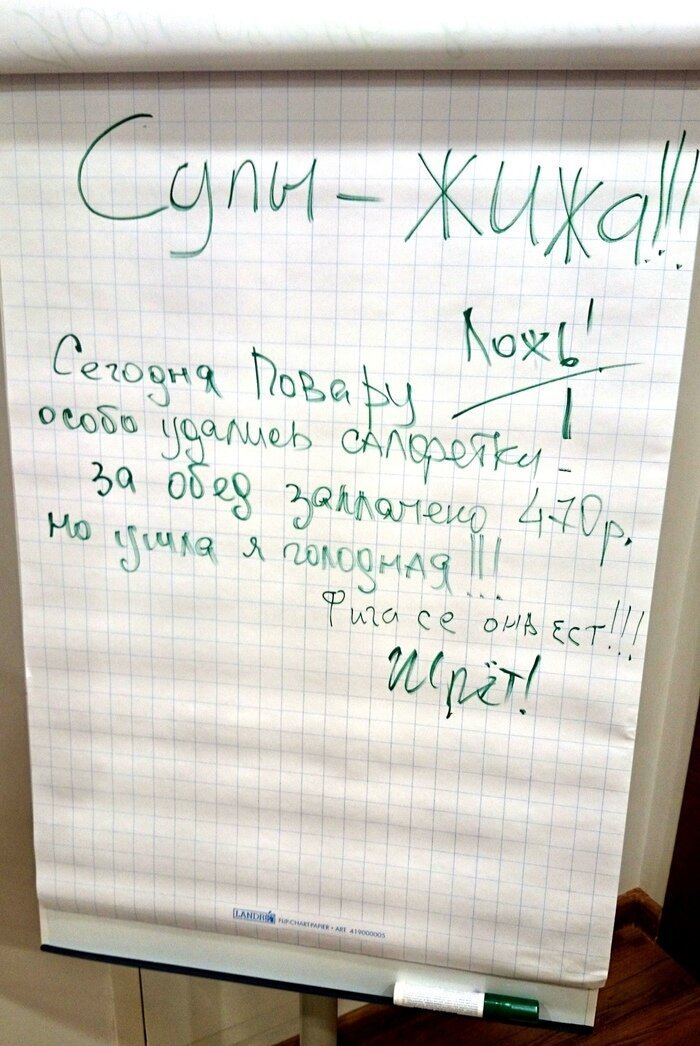 Супы – жижа!!!
Ложь!
Сегодня Повару
особо удались салфетки –
за обед заплачено 470р.
но ушла я голодная!!!
Фига се она ест!!!
Жрёт!
LANDRÉ FLIP-CHART-PAPIER • ART. 419000005